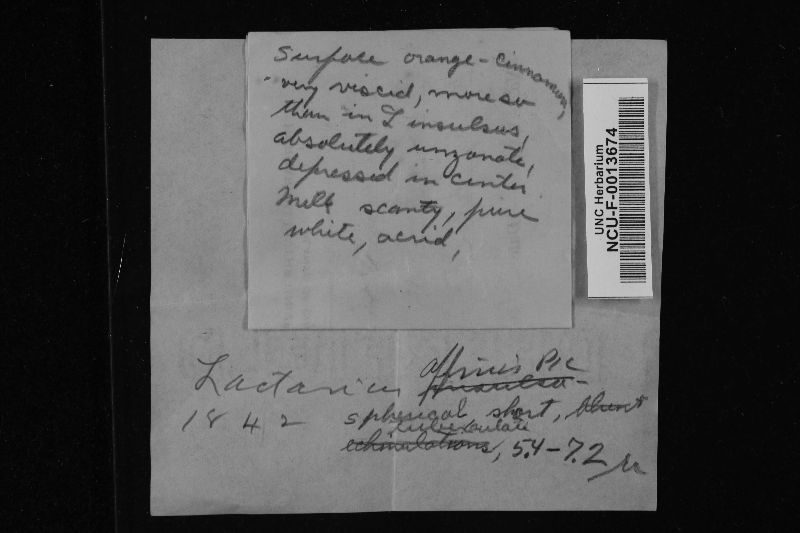 Surface orange-cinnamon,
very viscid, more so
than in L insulsus,
absolutely unzonate,
depressed in center
Milk scanty, pure
white, acrid,
UNC Herbarium
NCU-F-0013674
affinis Pk
Lactarius insulsu-
1842 spherical short, blunt
tuberculate
echinulations, 5.4-7.2
μ